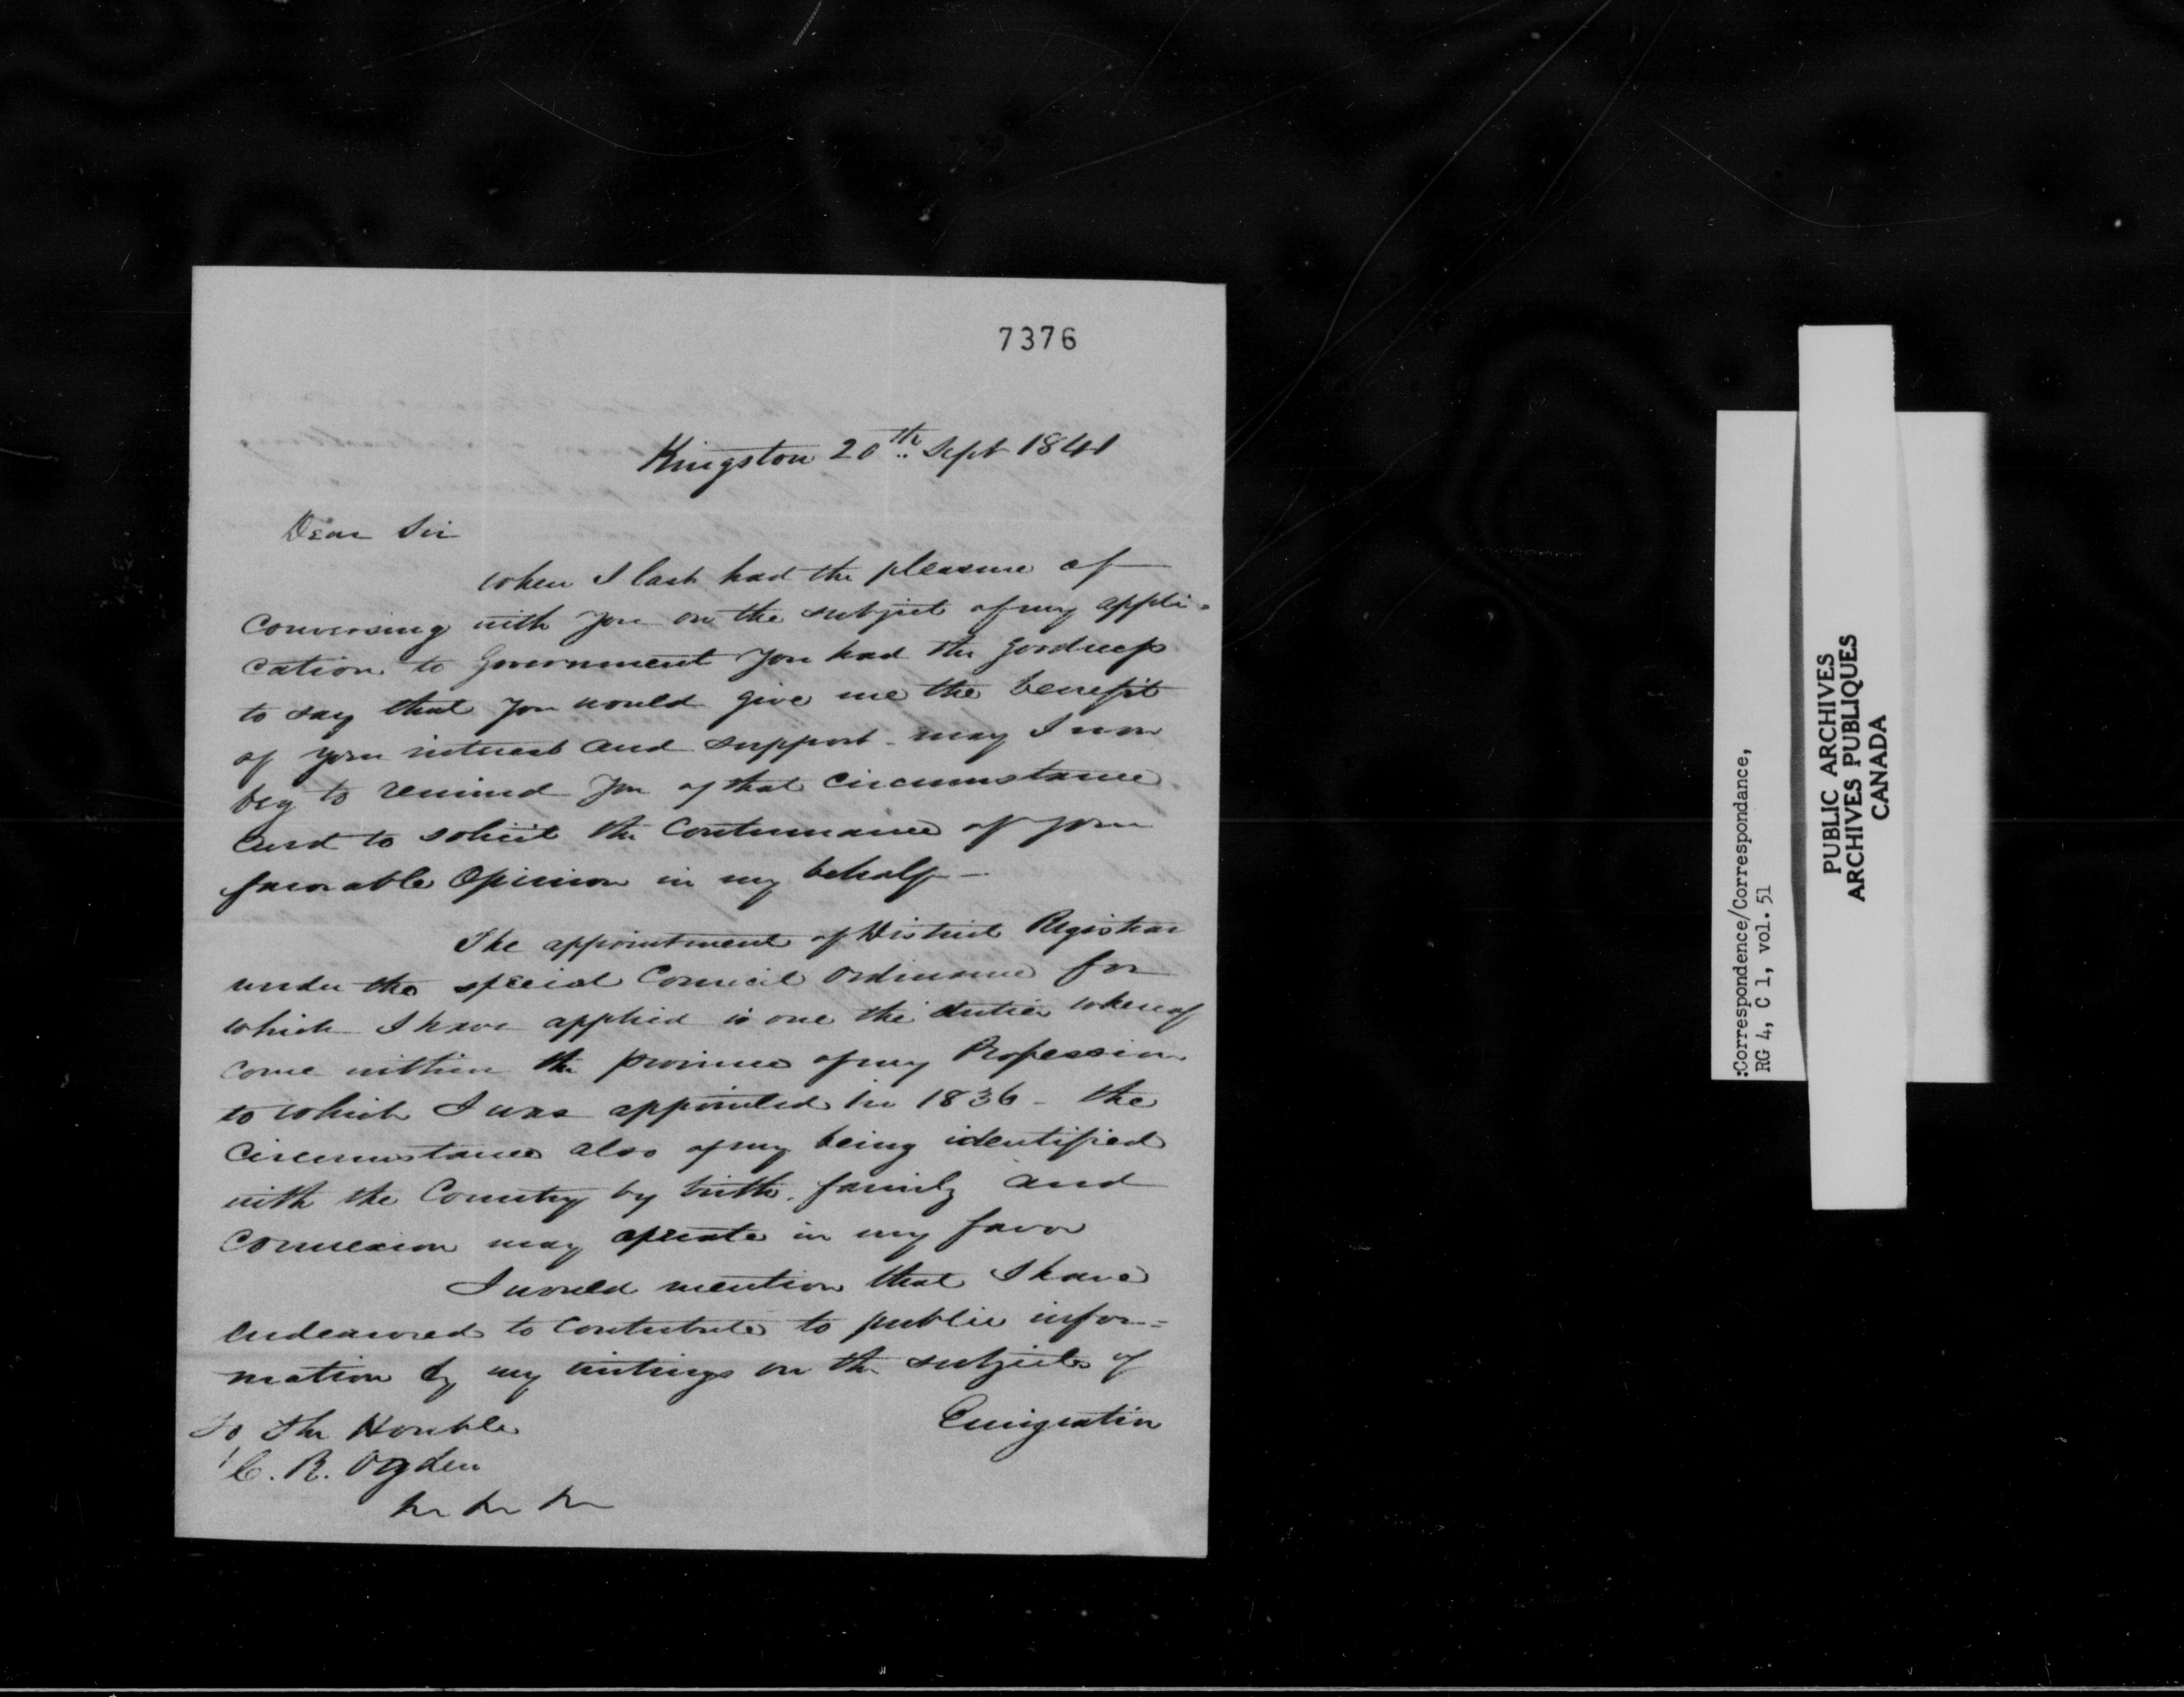 7376
Kingston 20th Sept 1841
Dear Sir
When I last had the pleasure of
conversing with you on the subject of my appli-
cation to Government you had the goodness
to say that you would give me the benefit
of your interest and support - may I now
beg to remind you of that circumstance
and to solicit the continuance of your
favorable Opinion in my behalf -
The appointment of District Registrar
under the special Council Ordinance for
which I have applied is one the duties whereof
come within the province of my Profession
to which I was appointed in 1836 - the
Circumstance also of my being identified
with the Country by birth, family and
Connexion may operate in my favor
I would mention that I have
endeavored to contribute to public infor=
mation by my writings on the subjects of
Emigration
To The Honble
C. R. Ogden
:Correspondence/Correspondance,
RG 4, C 1, vol. 51
PUBLIC ARCHIVES
ARCHIVES PUBLIQUES
CANADA